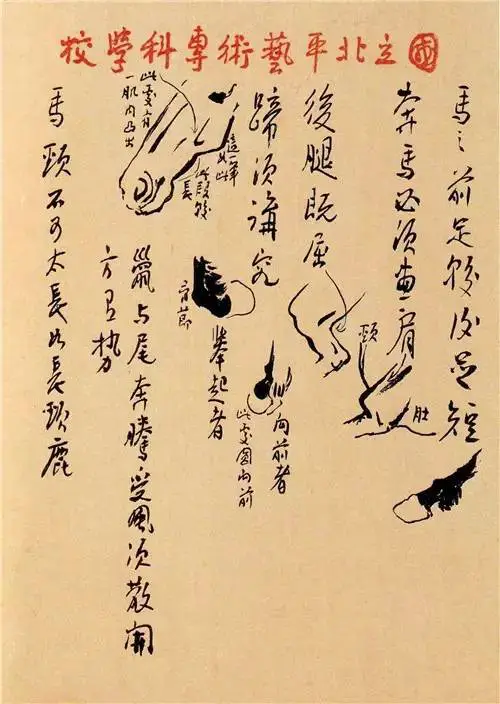 國立北平藝術專科學校
馬之前足較後足短
奔馬必須畫肩
後腿既屈
蹄須講究
頸
肚
向前者
此處圓向前
舉起者
有節
這一筆如此
此段較長
此處有
一肌肉凸出
鬣与尾奔騰受風須散開
方有勢
馬頸不可太長如長頸鹿